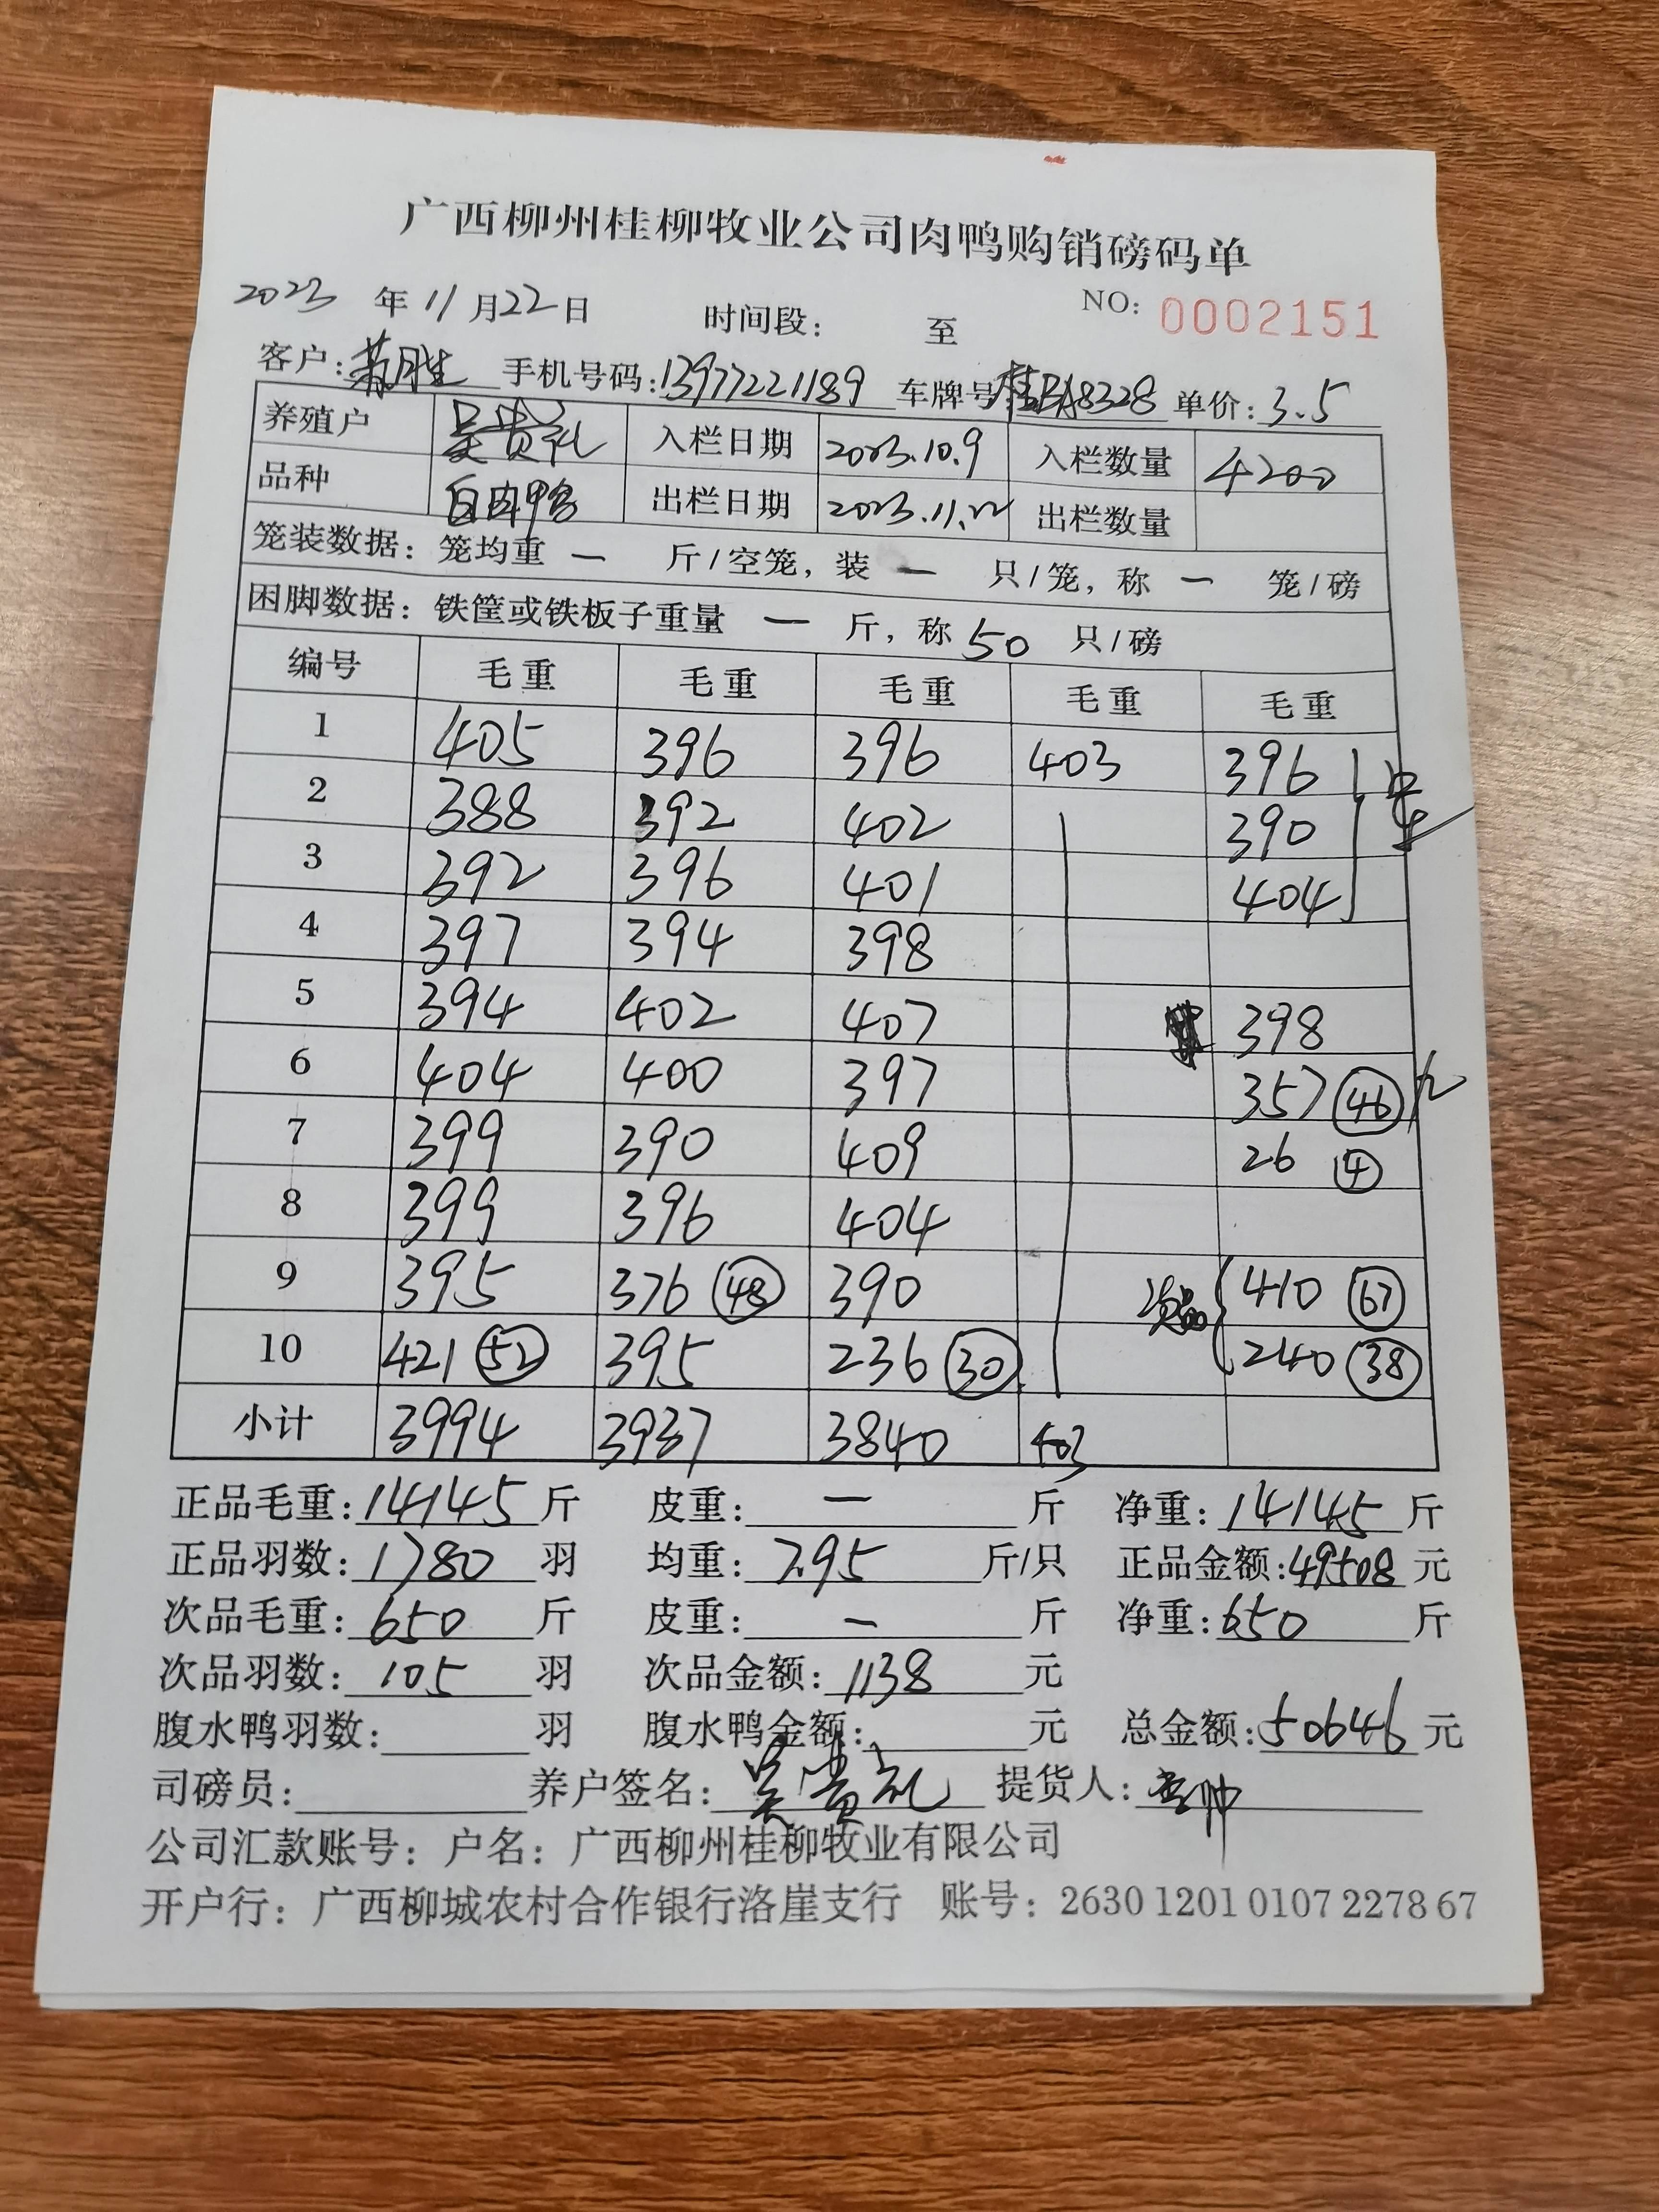 广西柳州桂柳牧业公司肉鸭购销磅码单
2023 年 11 月 22 日 时间段： 至 NO: 0002151
客户: 胜 手机号码: 13977221189 车牌号: 桂BA8328 单价: 3.5
养殖户 吴贵礼 入栏日期 2023.10.9 入栏数量 4200
品种 白肉鸭 出栏日期 2023.11.22 出栏数量
笼装数据：笼均重 一 斤/空笼，装 一 只/笼，称 一 笼/磅
困脚数据：铁筐或铁板子重量 一 斤，称 50 只/磅
编号 毛重 毛重 毛重 毛重 毛重
1 405 396 396 403 396
2 388 392 402 390
3 392 396 401 404
4 397 394 398
5 394 402 407 398
6 404 400 397 357 46
7 399 390 409 26 4
8 399 396 404
9 395 376 48 390 次品 410 67
10 421 52 395 236 30 240 38
小计 3994 3937 3840 403
正品毛重: 14145 斤 皮重: 一 斤 净重: 14145 斤
正品羽数: 1780 羽 均重: 7.95 斤/只 正品金额: 49508 元
次品毛重: 650 斤 皮重: 一 斤 净重: 650 斤
次品羽数: 105 羽 次品金额: 1138 元
腹水鸭羽数: 羽 腹水鸭金额: 元 总金额: 50646 元
司磅员: 养户签名: 吴贵礼 提货人:
公司汇款账号：户名：广西柳州桂柳牧业有限公司
开户行：广西柳城农村合作银行洛崖支行 账号：2630 1201 0107 2278 67